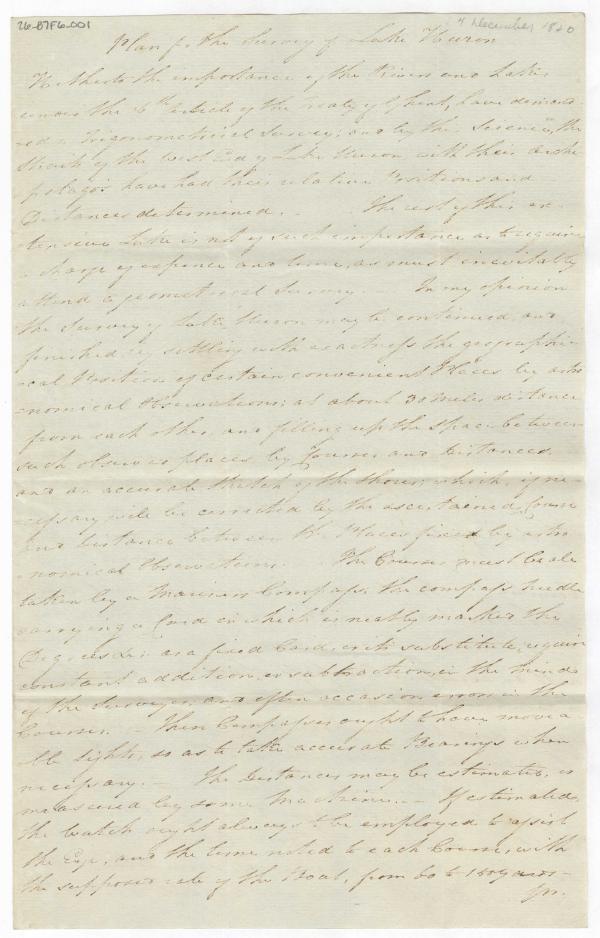 26-B7F6-001
7 December 1820
Plan for the Survey of Lake Huron
Hitherto the importance of the Rivers and Lakes
under the 6th Article of the treaty of Ghent, have demand
ed a Trigonometrical Survey; and by this Science, the
Straits of the West End of Lake Huron with their Archi
pelagos have had their relative Positions and
Distances determined. The rest of this ex
tensive Lake is not of such importance as to require
a charge of expence and time, as must inevitably
attend a geometrical Survey. In my opinion
the Survey of Lake Huron may be continued and
finished, by settling with exactness the geographi
cal Position of certain convenient Places by astro
nomical Observations; at about 30 miles distance
from each other, and filling up the space between
such observed places by Courses and Distances,
and an accurate Sketch of the Shores; which, if ne
cessary will be corrected by the ascertained Course
and distance between the Places fixed by astro
nomical Observations. The Courses must be all
taken by a Mariners Compass, the compass needle
carrying a Card on which is neatly marked the
Degrees as a fixed Card, with substitute, require
constant addition, or subtraction, in the mind
of the Surveyor, and often occasion errors in the
Courses. These Compasses ought to have movea
ble sights, so as to take accurate Bearings when
necessary. — The Distances may be estimated, or
measured by some Machine. — If estimated,
the Watch ought always to be employed to assist
the Eye, and the time noted to each Course, with
the supposed rate of the Boat, from 60 to 150 yards